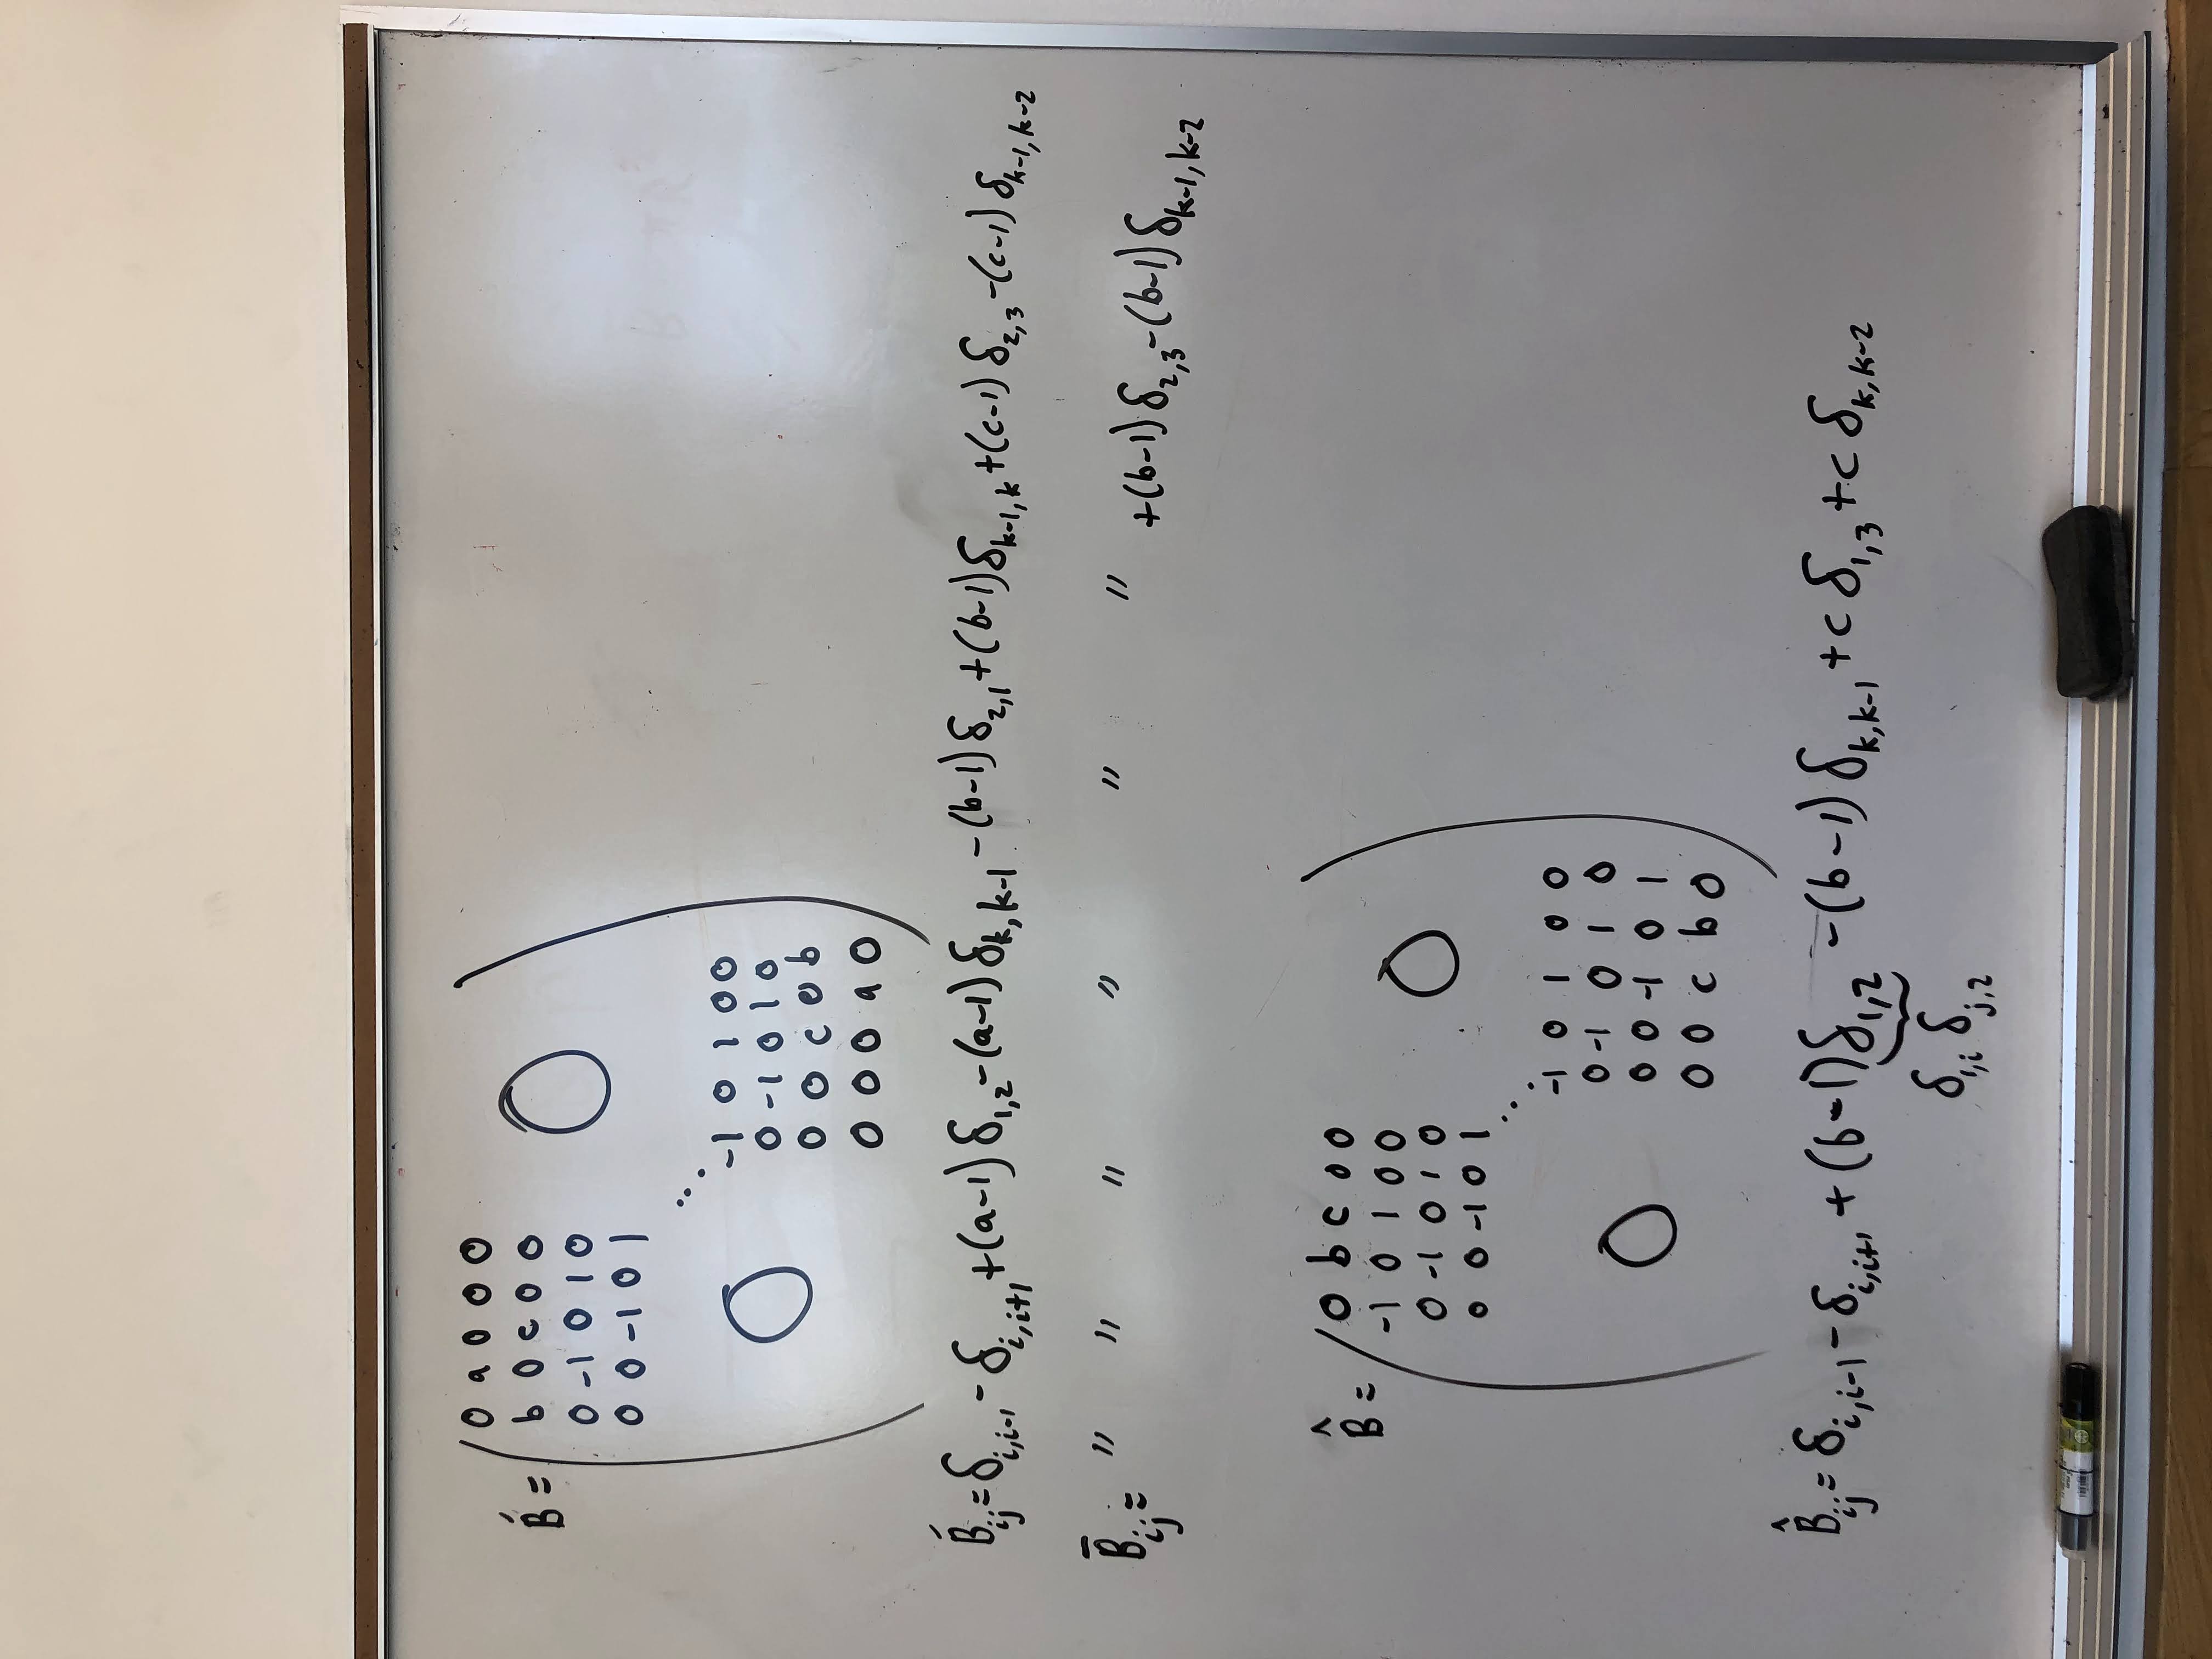 B́ =
0 a 0 0 0
b 0 c 0 0
0 -1 0 1 0
0 0 -1 0 1
⋱
-1 0 1 0 0
0 -1 0 1 0
0 0 c 0 b
0 0 0 a 0
B́_{ij} = δ_{i,i-1} - δ_{i,i+1} + (a-1) δ_{1,2} - (a-1) δ_{k,k-1} - (b-1) δ_{2,1} + (b-1) δ_{k-1,k} + (c-1) δ_{2,3} - (c-1) δ_{k-1,k-2}
B̄_{ij} = " " " " " " + (b-1) δ_{2,3} - (b-1) δ_{k-1,k-2}
B̂ =
0 b c 0 0
-1 0 1 0 0
0 -1 0 1 0
0 0 -1 0 1
⋱
-1 0 1 0 0
0 -1 0 1 0
0 0 -1 0 1
0 0 c b 0
B̂_{ij} = δ_{i,i-1} - δ_{i,i+1} + (b-1) δ_{1,2} - (b-1) δ_{k,k-1} + c δ_{1,3} + c δ_{k,k-2}
δ_{1,i} δ_{j,2}